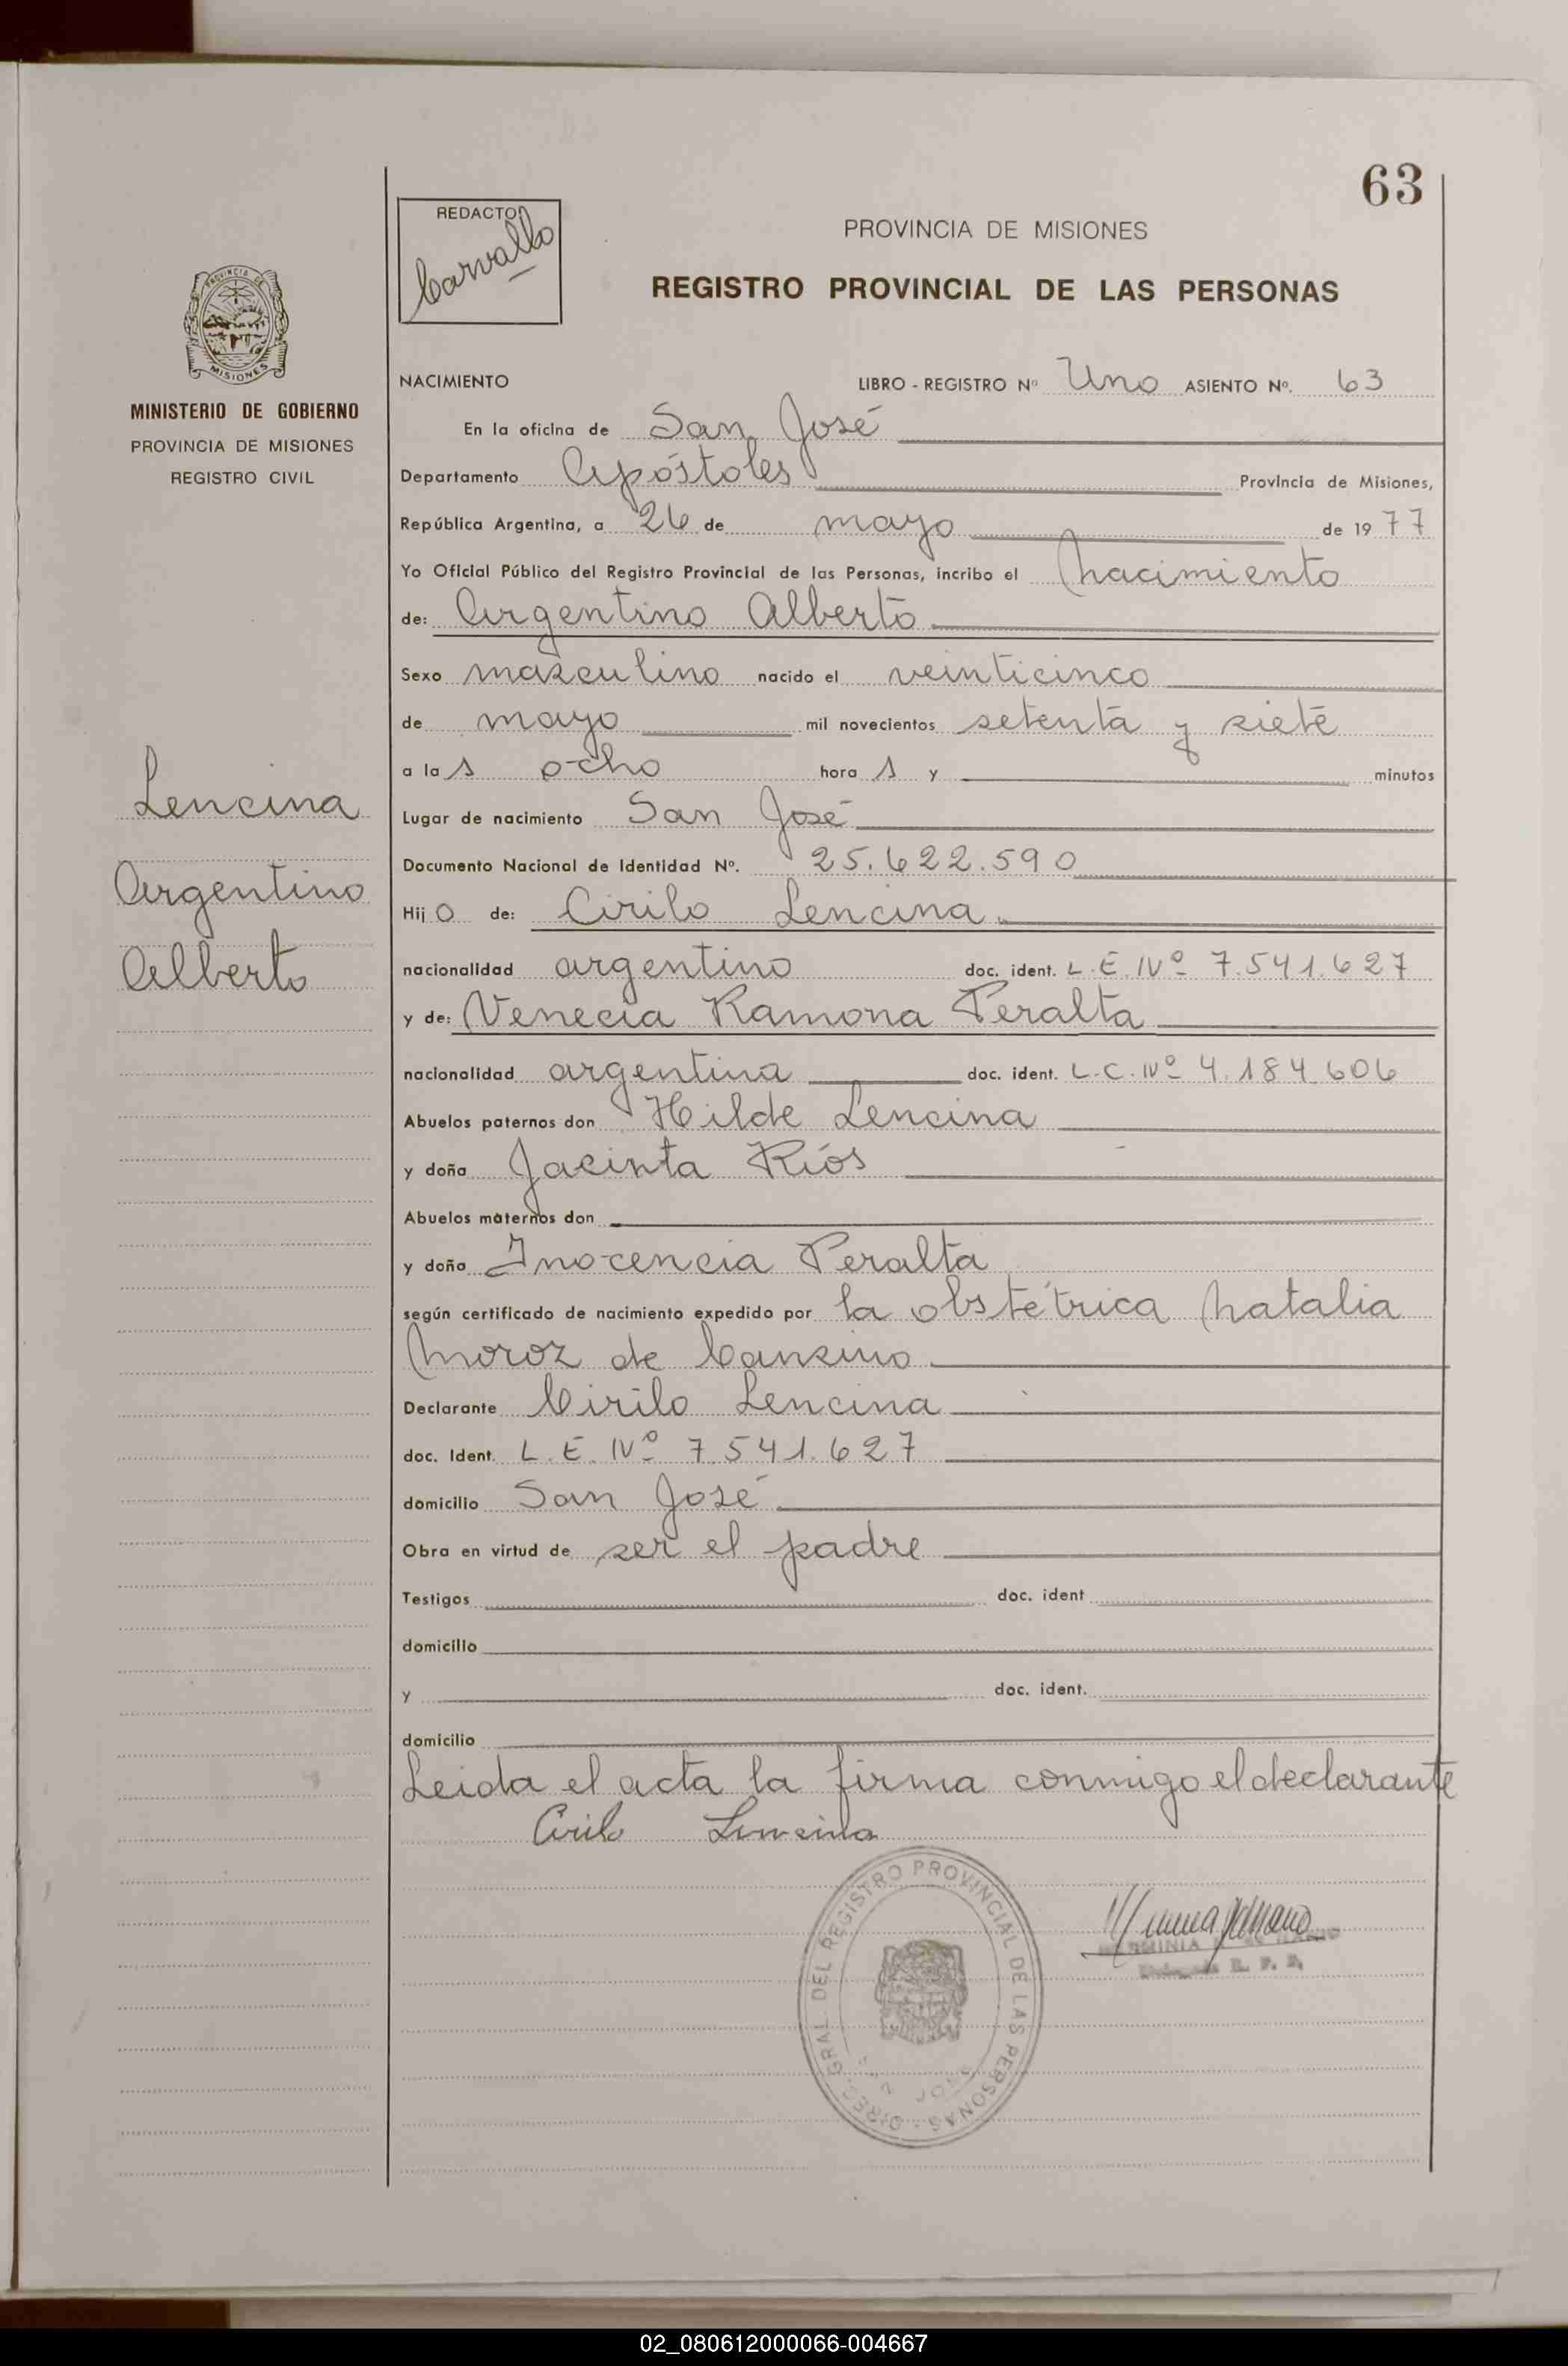 63
REDACTO
Carvallo
PROVINCIA DE MISIONES
REGISTRO PROVINCIAL DE LAS PERSONAS
PROVINCIA DE
MISIONES
MINISTERIO DE GOBIERNO
PROVINCIA DE MISIONES
REGISTRO CIVIL
Lencina
Argentino
Alberto
NACIMIENTO LIBRO - REGISTRO Nº Uno ASIENTO Nº. 63
En la oficina de San José
Departamento Apóstoles Provincia de Misiones,
República Argentina, a 26 de mayo de 1977
Yo Oficial Público del Registro Provincial de las Personas, incribo el nacimiento
de: Argentino Alberto
Sexo masculino nacido el veinticinco
de mayo mil novecientos setenta y siete
a las ocho horas y minutos
Lugar de nacimiento San José
Documento Nacional de Identidad Nº. 25.622.590
Hijo de: Cirilo Lencina
nacionalidad argentino doc. ident. L.E. Nº 7.541.627
y de: Venecia Ramona Peralta
nacionalidad argentina doc. ident. L.C. Nº 4.184.606
Abuelos paternos don Hilde Lencina
y doña Jacinta Ríos
Abuelos maternos don
y doña Inocencia Peralta
según certificado de nacimiento expedido por la obstétrica Natalia
Moroz de Cansino
Declarante Cirilo Lencina
doc. Ident. L.E. Nº 7.541.627
domicilio San José
Obra en virtud de ser el padre
Testigos doc. ident
domicilio
y doc. ident.
domicilio
Leida el acta la firma conmigo el declarante
Cirilo Lencina
DIREC. GRAL. DEL REGISTRO PROVINCIAL DE LAS PERSONAS
SAN JOSE
R. P. P.
02_080612000066-004667